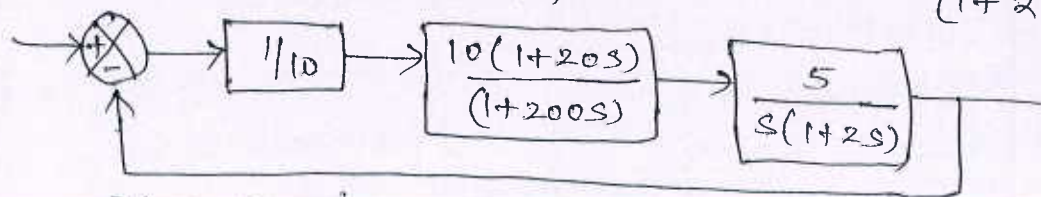 (1+2
+
-
1/10
10(1+20s)
(1+200s)
5
s(1+2s)